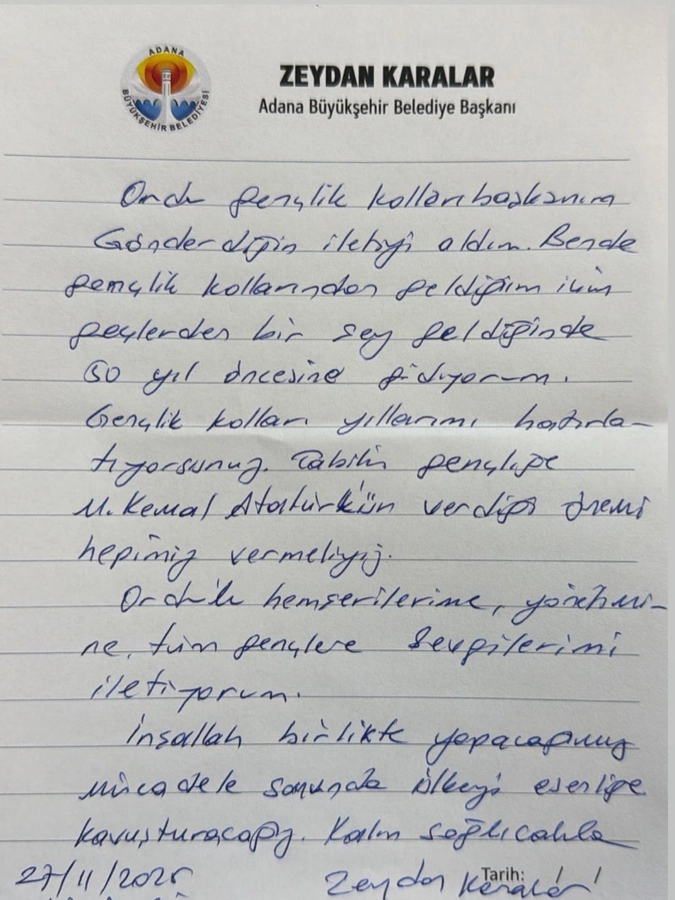 ADANA
BÜYÜKŞEHİR BELEDİYESİ
ZEYDAN KARALAR
Adana Büyükşehir Belediye Başkanı
Ordu gençlik kolları başkanım
Gönderdiğin iletiyi aldım. Bende
gençlik kollarından geldiğim için
gençlerden bir şey geldiğinde
50 yıl öncesine gidiyorum.
Gençlik kolları yıllarımı hatırla-
tıyorsunuz. Tabiki gençliğe
M. Kemal Atatürk'ün verdiği önemi
hepimiz vermeliyiz.
Ordulu hemşerilerime, yönetimi-
ne, tüm gençlere sevgilerimi
iletiyorum.
İnşallah birlikte yapacağımız
mücadele sonunda ülkeyi esenliğe
kavuşturacağız. Kalın sağlıcakla
27/11/2025 Zeydan Karalar
Tarih: / /